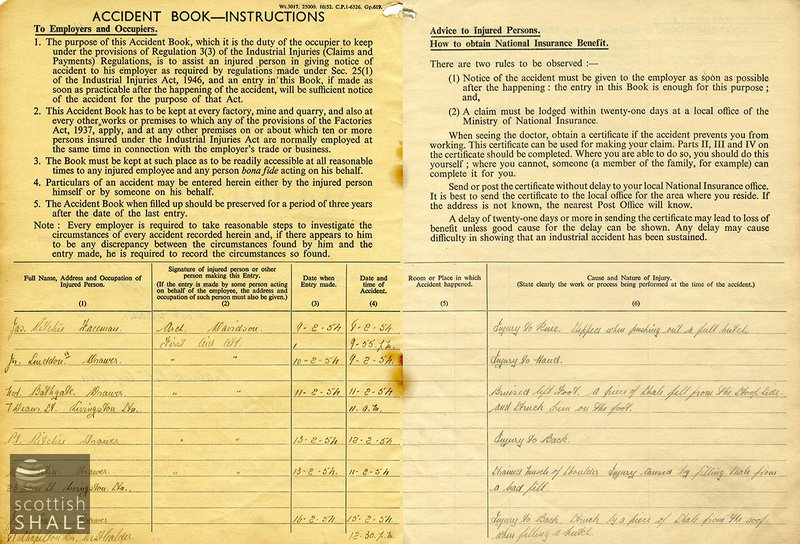 Wt.3017. 25000. 10/52. C.P.I-6326. Gp.619.
ACCIDENT BOOK—INSTRUCTIONS
To Employers and Occupiers.
1. The purpose of this Accident Book, which it is the duty of the occupier to keep
under the provisions of Regulation 3(3) of the Industrial Injuries (Claims and
Payments) Regulations, is to assist an injured person in giving notice of
accident to his employer as required by regulations made under Sec. 25(1)
of the Industrial Injuries Act, 1946, and an entry in this Book, if made as
soon as practicable after the happening of the accident, will be sufficient notice
of the accident for the purpose of that Act.
2. This Accident Book has to be kept at every factory, mine and quarry, and also at
every other works or premises to which any of the provisions of the Factories
Act, 1937, apply, and at any other premises on or about which ten or more
persons insured under the Industrial Injuries Act are normally employed at
the same time in connection with the employer's trade or business.
3. The Book must be kept at such place as to be readily accessible at all reasonable
times to any injured employee and any person bona fide acting on his behalf.
4. Particulars of an accident may be entered herein either by the injured person
himself or by someone on his behalf.
5. The Accident Book when filled up should be preserved for a period of three years
after the date of the last entry.
Note : Every employer is required to take reasonable steps to investigate the
circumstances of every accident recorded herein and, if there appears to him
to be any discrepancy between the circumstances found by him and the
entry made, he is required to record the circumstances so found.
Advice to Injured Persons.
How to obtain National Insurance Benefit.
There are two rules to be observed :—
(1) Notice of the accident must be given to the employer as soon as possible
after the happening : the entry in this Book is enough for this purpose ;
and,
(2) A claim must be lodged within twenty-one days at a local office of the
Ministry of National Insurance.
When seeing the doctor, obtain a certificate if the accident prevents you from
working. This certificate can be used for making your claim. Parts II, III and IV on
the certificate should be completed. Where you are able to do so, you should do this
yourself ; where you cannot, someone (a member of the family, for example) can
complete it for you.
Send or post the certificate without delay to your local National Insurance office.
It is best to send the certificate to the local office for the area where you reside. If
the address is not known, the nearest Post Office will know.
A delay of twenty-one days or more in sending the certificate may lead to loss of
benefit unless good cause for the delay can be shown. Any delay may cause
difficulty in showing that an industrial accident has been sustained.
Full Name, Address and Occupation of
Injured Person.
(1)
Signature of injured person or other
person making this Entry.
(If the entry is made by some person acting
on behalf of the employee, the address and
occupation of such person must also be given.)
(2)
Date when
Entry made.
(3)
Date and
time of
Accident.
(4)
Room or Place in which
Accident happened.
(5)
Cause and Nature of Injury.
(State clearly the work or process being performed at the time of the accident.)
(6)
Jas. Ritchie Faceman. Arch. Davidson. 9-2-54 8-2-54 Injury to Knee. Slipped when pushing out a full hutch
First Aid Att. 9-55 p.m.
Drawer. " " 10-2-54 9-2-54 Injury to Hand.
Bathgate Drawer. " " 11-2-54 11-2-54 Bruised left Foot. A piece of Shale fell from the Stoop Side
7 Deans St. Livingston Stn. 11 a.m. and struck him on the foot.
Ritchie Drawer " " 13-2-54 12-2-54 Injury to Back.
Drawer. " " 13-2-54 11-2-54 Strained muscle of Shoulder Injury caused by filling Shale from
Livingston Stn. a bad fill.
Drawer. 16-2-54 15-2-54 Injury to Back. Struck by a piece of Shale from the roof
West Calder. 12-30 p.m. when filling a hutch.
scottish
SHALE